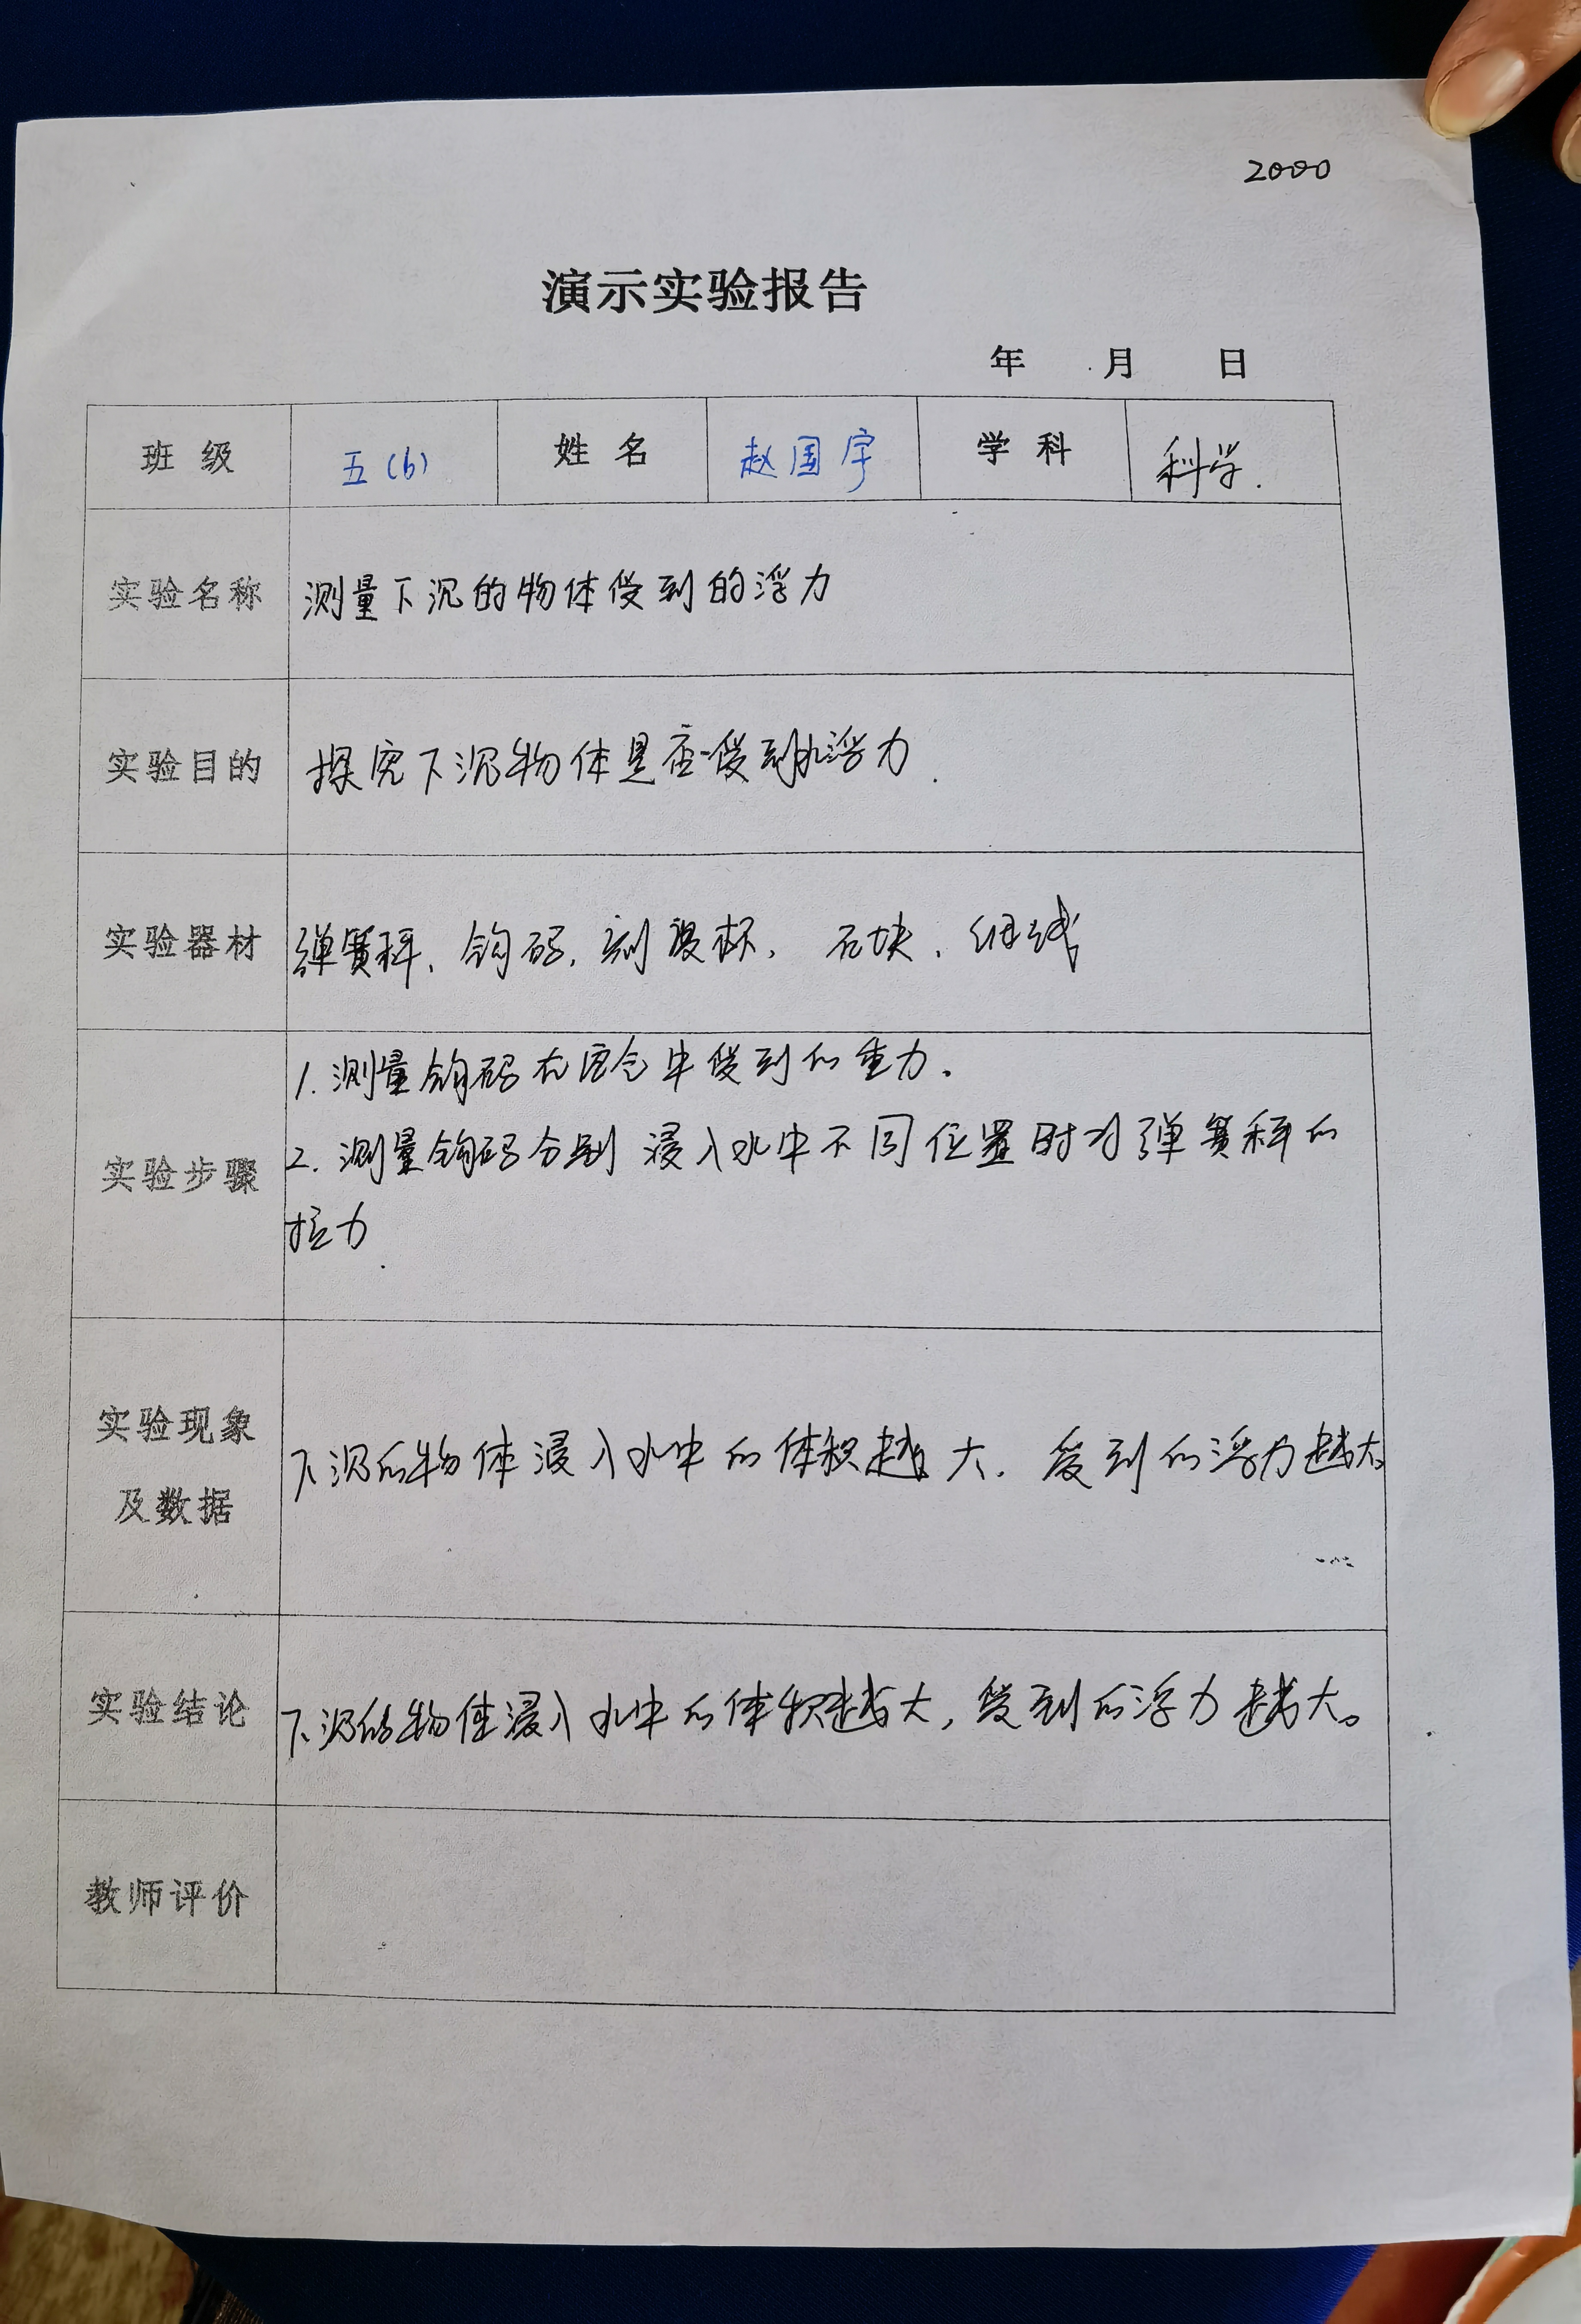 2000
演示实验报告
年 月 日
班级 五(6) 姓名 赵国宇 学科 科学.
实验名称 测量下沉的物体受到的浮力
实验目的 探究下沉物体是否受到水浮力.
实验器材 弹簧秤、钩码、刻度杯、石块、细线
1.测量钩码在空气中受到的重力.
实验步骤 2.测量钩码分别浸入水中不同位置时对弹簧秤的
拉力.
实验现象
及数据 下沉的物体浸入水中的体积越大.受到的浮力越大。
实验结论 下沉的物体浸入水中的体积越大,受到的浮力越大。
教师评价